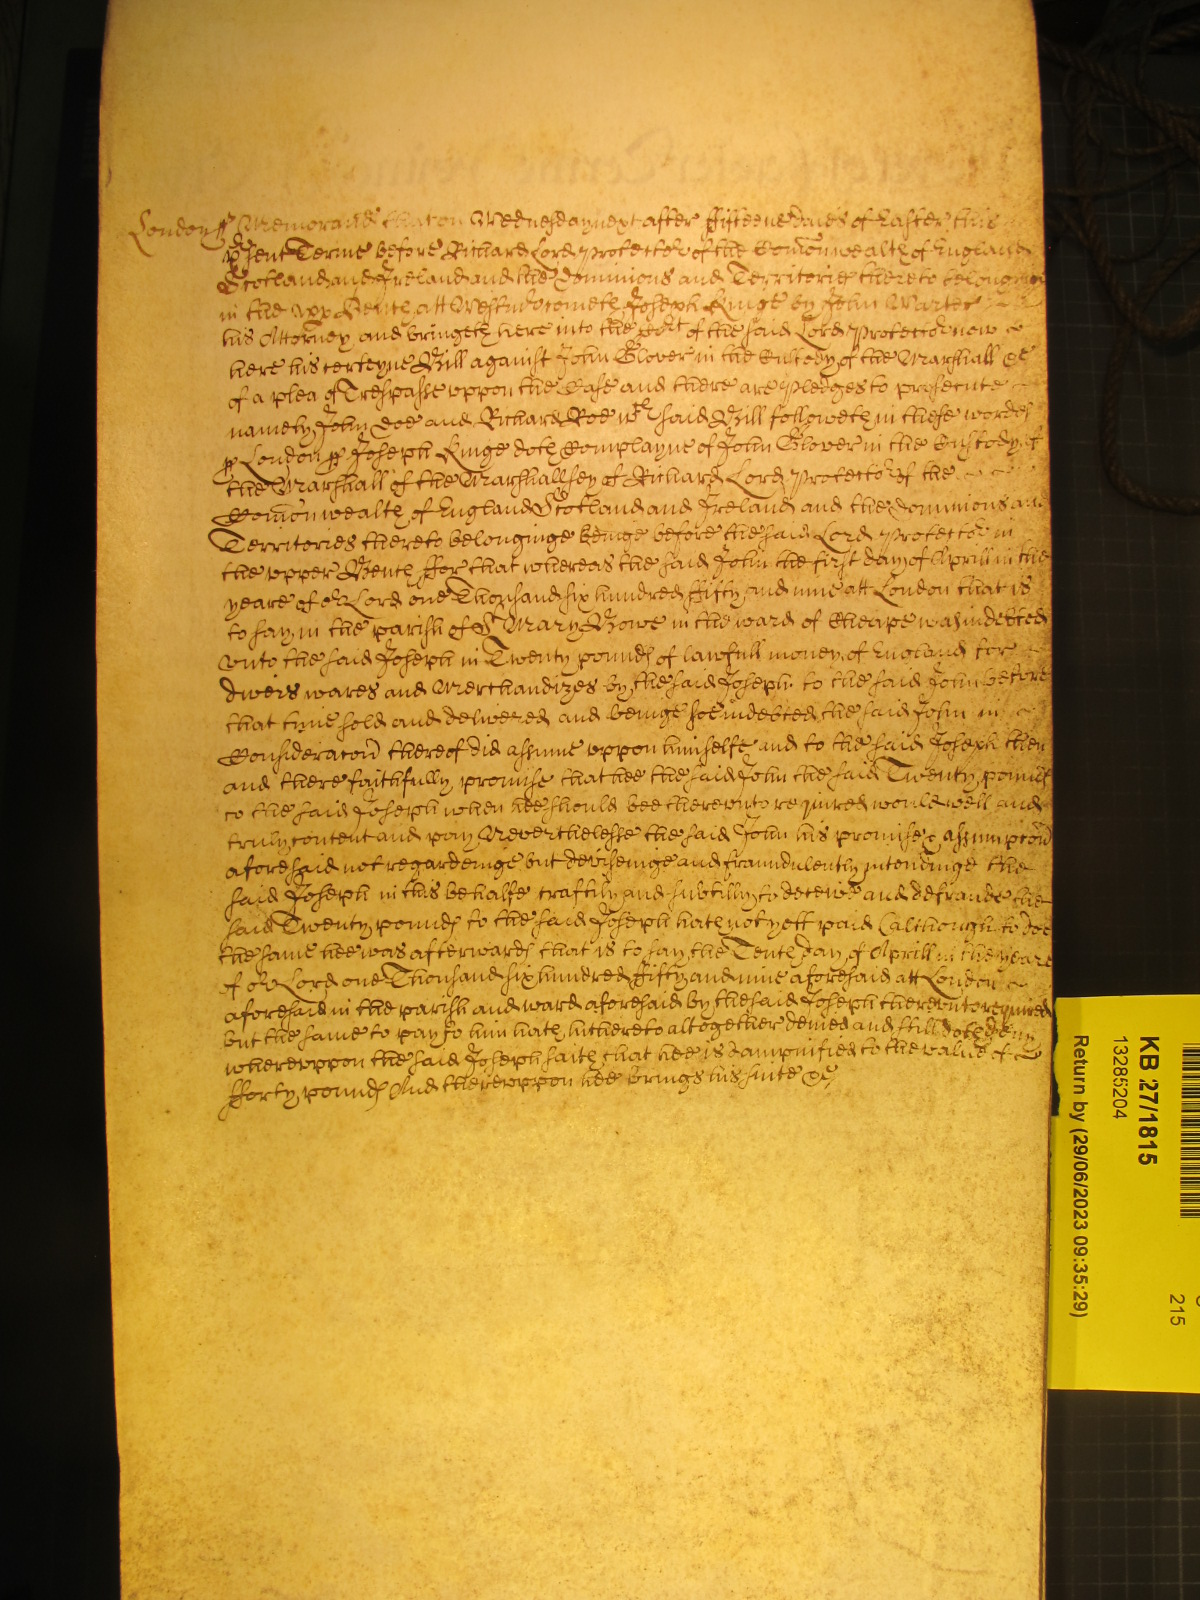 London ss Memorand that on Wednesday next after fifteene daies of Easter this
psent Terme before Richard Lord Protector of the Comonwealth of England
Scotland and Ireland and the Dominions and Territories thereto belonginge
in the upp Bench att Westm cometh Joseph Kinge by John
his Attorney and bringeth here into the Cort of the said Lord Protector now
here his certeyne Bill against John Glover in the Custody of the Marshall &c
of a plea of Trespasse uppon the Case and there are Pledges to prosecute
namely John Doe and Richard Roe wch said Bill followeth in these wordes
ss London ss Joseph Kinge doth Complayne of John Glover in the Custody of
the Marshall of the Marshallsey of Richard Lord Protector of the
Comonwealth of England Scotland and Ireland and the Dominions and
Territories thereto belonginge beinge before the said Lord Protector in
the upper Bench ffor that whereas the said John the first day of Aprill in the
yeare of or Lord one Thousand six hundred fifty and nine att London that is
to say in the parish of St Mary Bowe in the ward of Cheape was indebted
unto the said Joseph in Twenty pounds of lawfull money of England for
divers wares and Merchandizes by the said Joseph to the said John before
that tyme sold and delivered and beinge soe indebted the said John in
Consideracon thereof did assume uppon himselfe and to the said Joseph then
and there faithfully promise that hee the said John the said Twenty pounds
to the said Joseph when hee should bee thereunto required would well and
truly content and pay Neverthelesse the said John his promise & assumpcon
aforesaid not regardeinge but deviseinge and fraudulently intendinge the
said Joseph in this behalfe craftily and subtilly to deceive and defraude the
said Twenty pounds to the said Joseph hath not yett paid (although to doe
the same hee was afterwards that is to say the Tenth day of Aprill in the yeare
of or Lord one Thousand six hundred fifty and nine aforesaid att London
aforesaid in the parish and ward aforesaid by the said Joseph thereunto required
but the same to pay to him hath hithereto altogether denied and still doth deny
whereuppon the said Joseph saith that hee is dampnified to the value of
fforty pounds And thereuppon hee brings his suite &c
KB 27/1815
13285204
Return by (29/06/2023 09:35:29)
215